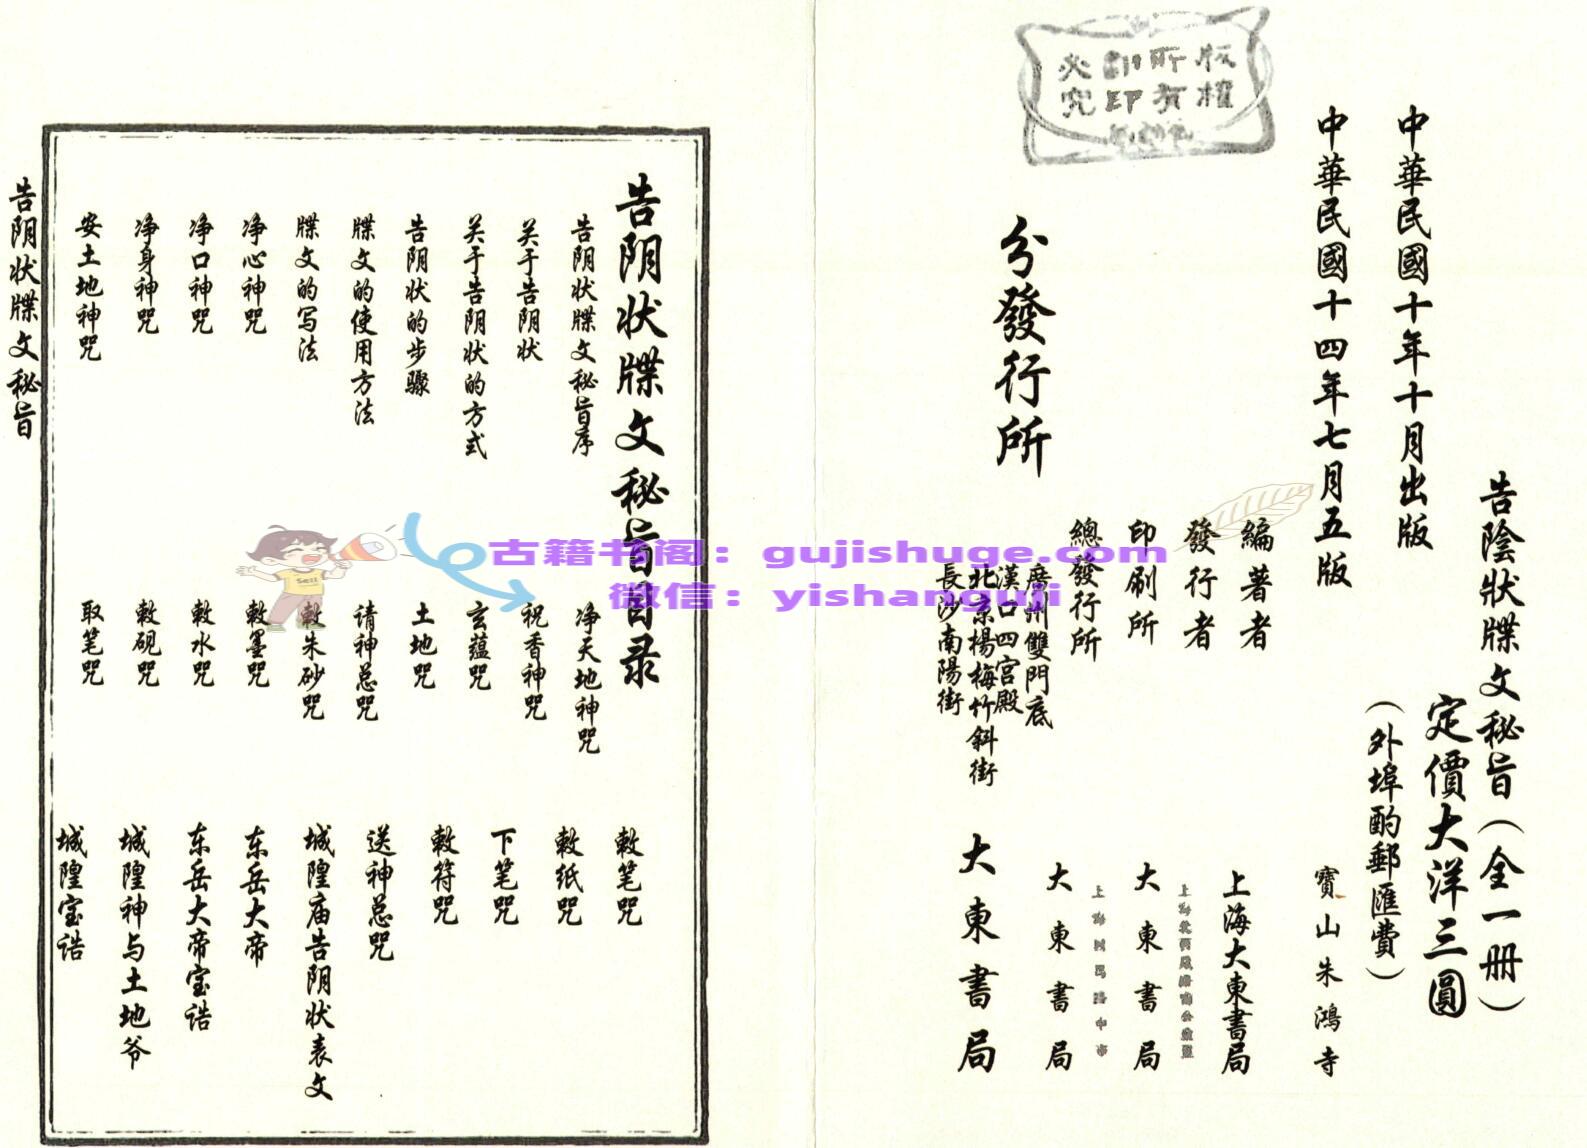 版權
所有
翻印
必究
告陰狀牒文秘旨（全一冊）
定價大洋三圓
（外埠酌郵匯費）
中華民國十年十月出版
中華民國十四年七月五版
編著者 寶山朱鴻寺
發行者 上海大東書局
印刷所 大東書局
總發行所 大東書局
分發行所
廣州雙門底
漢口四宮殿
北京楊梅竹斜街
長沙南陽街
大東書局
告阴状牒文秘旨目录
告阴状牒文秘旨序
关于告阴状
关于告阴状的方式
告阴状的步骤
牒文的使用方法
牒文的写法
净心神咒
净口神咒
净身神咒
安土地神咒
净天地神咒
祝香神咒
玄蕴咒
土地咒
请神总咒
敕朱砂咒
敕墨咒
敕水咒
敕砚咒
取笔咒
敕笔咒
敕纸咒
下笔咒
敕符咒
送神总咒
城隍庙告阴状表文
东岳大帝
东岳大帝宝诰
城隍神与土地爷
城隍宝诰
告阴状牒文秘旨
古籍书阁：gujishuge.com
微信：yishanguji